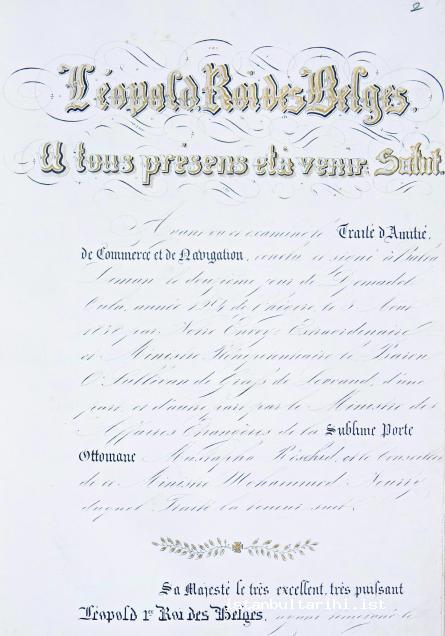 2
Léopold, Roi des Belges,
A tous présens et à venir, Salut.
Ayant vu et examiné le Traité d'Amitié,
de Commerce et de Navigation, conclu et signé à Balta
Liman le douzième jour de Gemadel
Oula, année de l'hégire le 3 Août
par Notre Envoyé Extraordinaire
et Ministre Plénipotentiaire le Baron
O'Sullivan de Grass de Seovaud, d'une
part, et d'autre part par le Ministre des
Affaires Etrangères de la Sublime Porte
Ottomane Mustapha Réschid, et le Conseiller
de ce Ministre Mohammed Nourry
duquel Traité la teneur suit:
Sa Majesté le très excellent, très puissant
Léopold 1er Roi des Belges, ayant témoigné le
istanbultarihi.ist